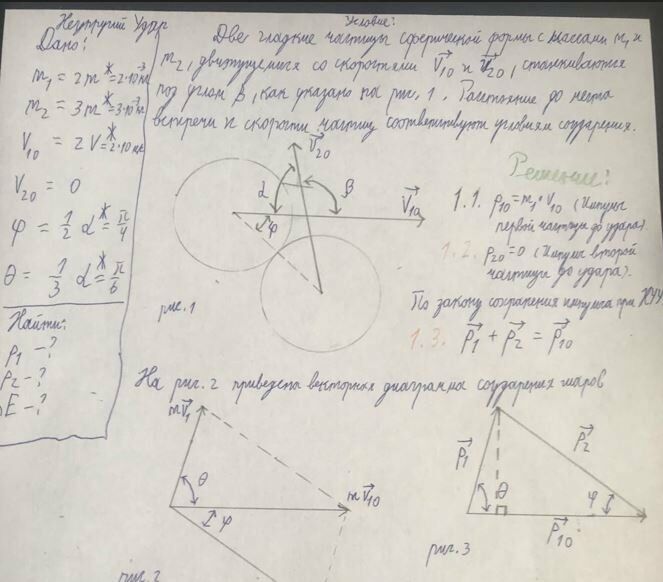 Неупругий Удар
Дано:
m₁ = 2m *= 2·10⁻³ кг
m₂ = 3m *= 3·10⁻³ кг
V₁₀ = 2V *= 2·10 м/с
V₂₀ = 0
φ = 1/2 α *= π/4
θ = 1/3 α *= π/6
Найти:
p₁ - ?
p₂ - ?
E - ?
Условие:
Две гладкие частицы сферической формы с массами m₁ и
m₂, движущиеся со скоростями V₁₀ и V₂₀, сталкиваются
под углом β, как указано на рис. 1. Расстояние до места
встречи и скорости частиц соответствуют условиям соударения.
V₂₀
α
β
V₁₀
φ
рис. 1
Решение:
1.1. p₁₀ = m₁·V₁₀ (Импульс
первой частицы до удара)
1.2. p₂₀ = 0 (Импульс второй
частицы до удара).
По закону сохранения импульса при
1.3. p⃗₁ + p⃗₂ = p⃗₁₀
На рис. 2 приведена векторная диаграмма соударения шаров
mV⃗₁
θ
φ
mV⃗₁₀
рис. 2
p⃗₁
p⃗₂
θ
φ
p⃗₁₀
рис. 3